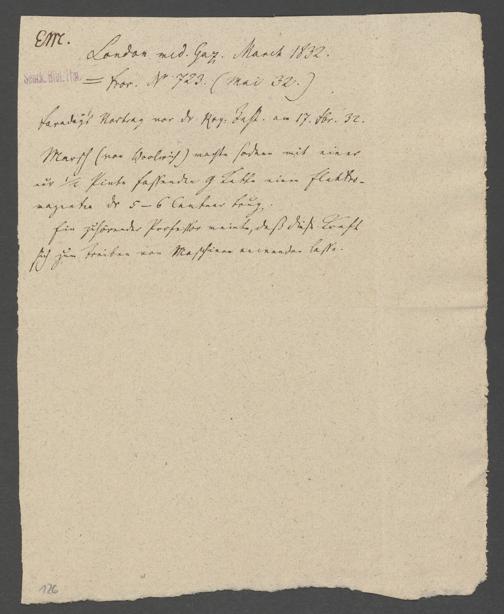 EM.
London med. Gaz. March 1832.
= Fror. N° 723. (Mai 32.)
Faraday's Vortrag vor der Roy. Inst. am 17. Fbr. 32.
Marsh (von Woolwich) machte sodann mit einer
nur 1/2 Pinte fassenden Kette einen Elektro-
magneten der 5–6 Centner trug.
Ein zuhörender Professor meinte, daß diese Kraft
sich zum treiben von Maschinen anwenden lasse.
126